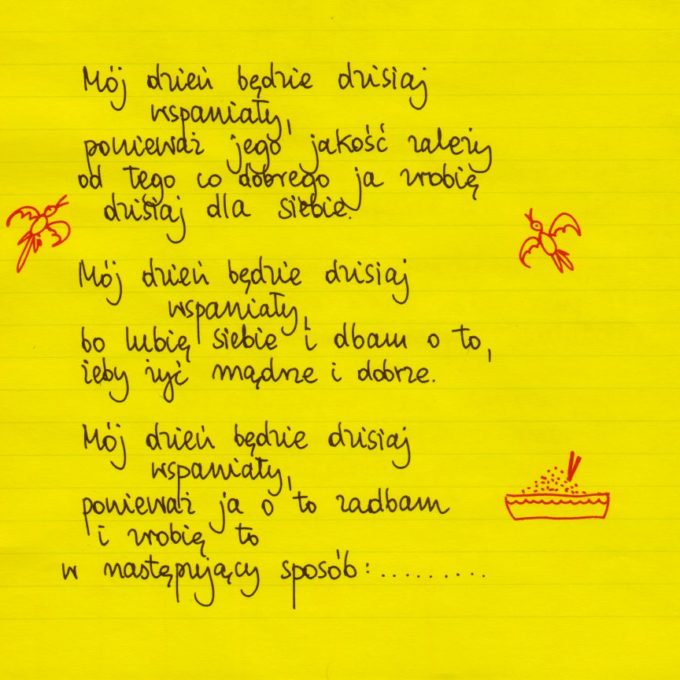 Mój dzień będzie dzisiaj
wspaniały,
ponieważ jego jakość zależy
od tego co dobrego ja zrobię
dzisiaj dla siebie.
Mój dzień będzie dzisiaj
wspaniały,
bo lubię siebie i dbam o to,
żeby żyć mądrze i dobrze.
Mój dzień będzie dzisiaj
wspaniały,
ponieważ ja o to zadbam
i zrobię to
w następujący sposób:.........